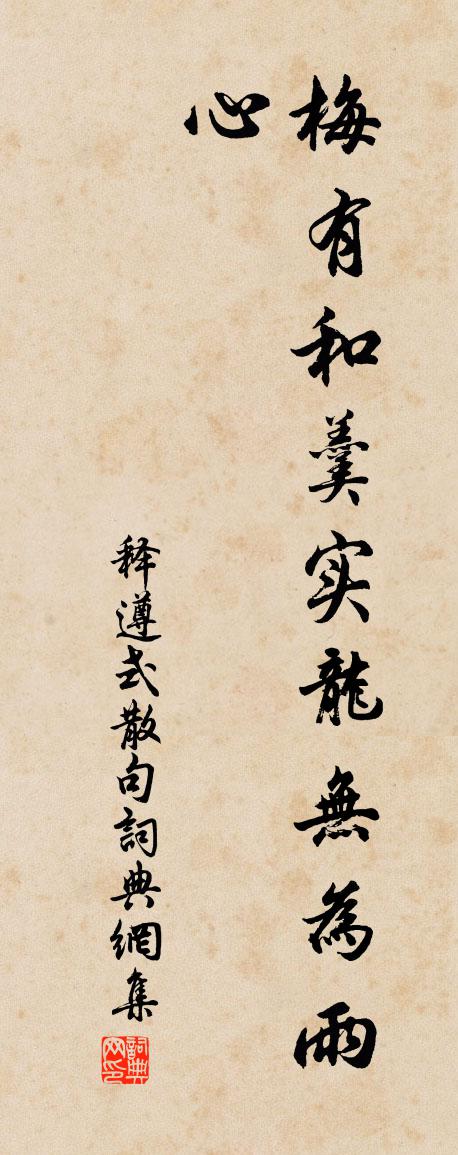 梅有和羹实龍無為雨
心
释遵式散句詞典網集
詞典网印